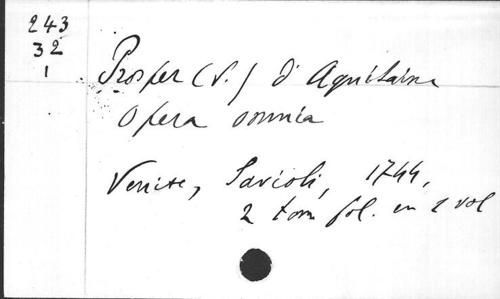 243
32
1
Prosper (S.) d'Aquitaine
Opera omnia
Venise, Savioli, 1744,
2 tom fol. en 1 vol